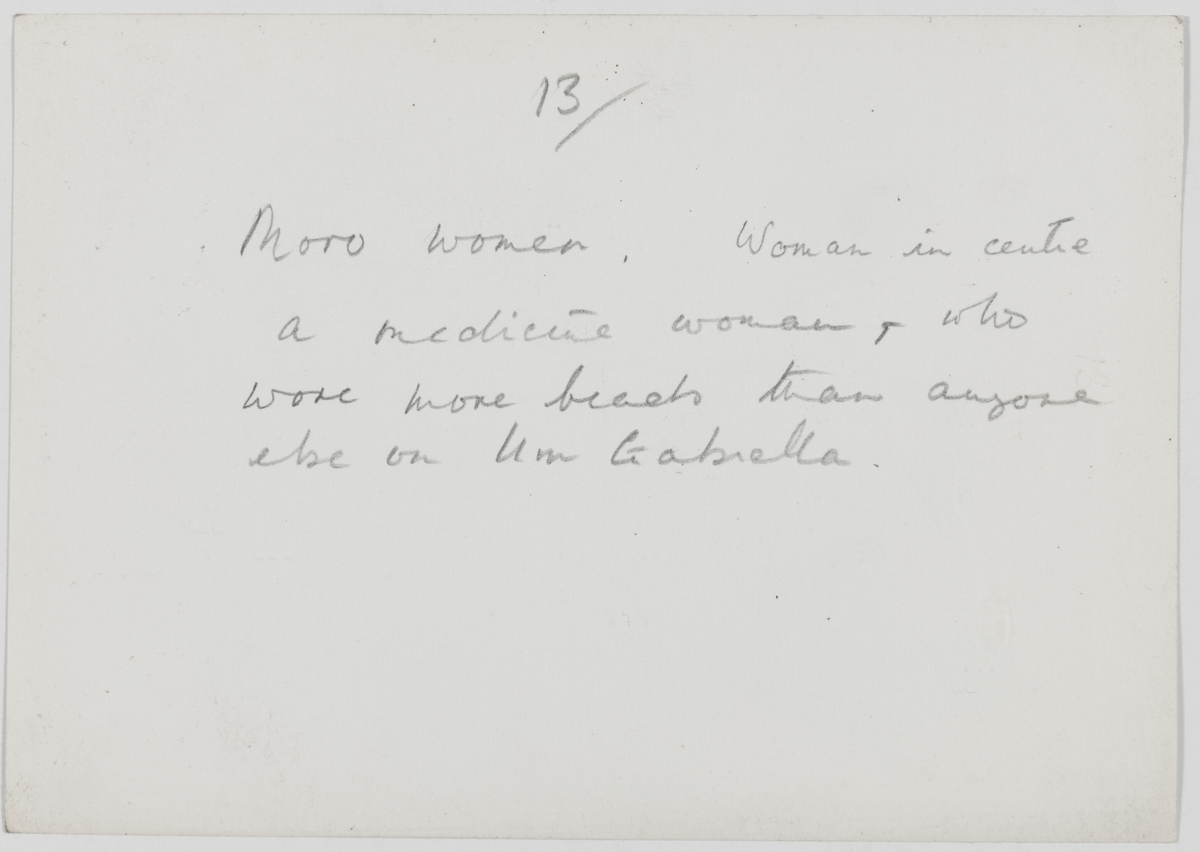 13/
Moro women. Woman in centre
a medicine woman, who
wore more beads than anyone
else on Um Gabrella.